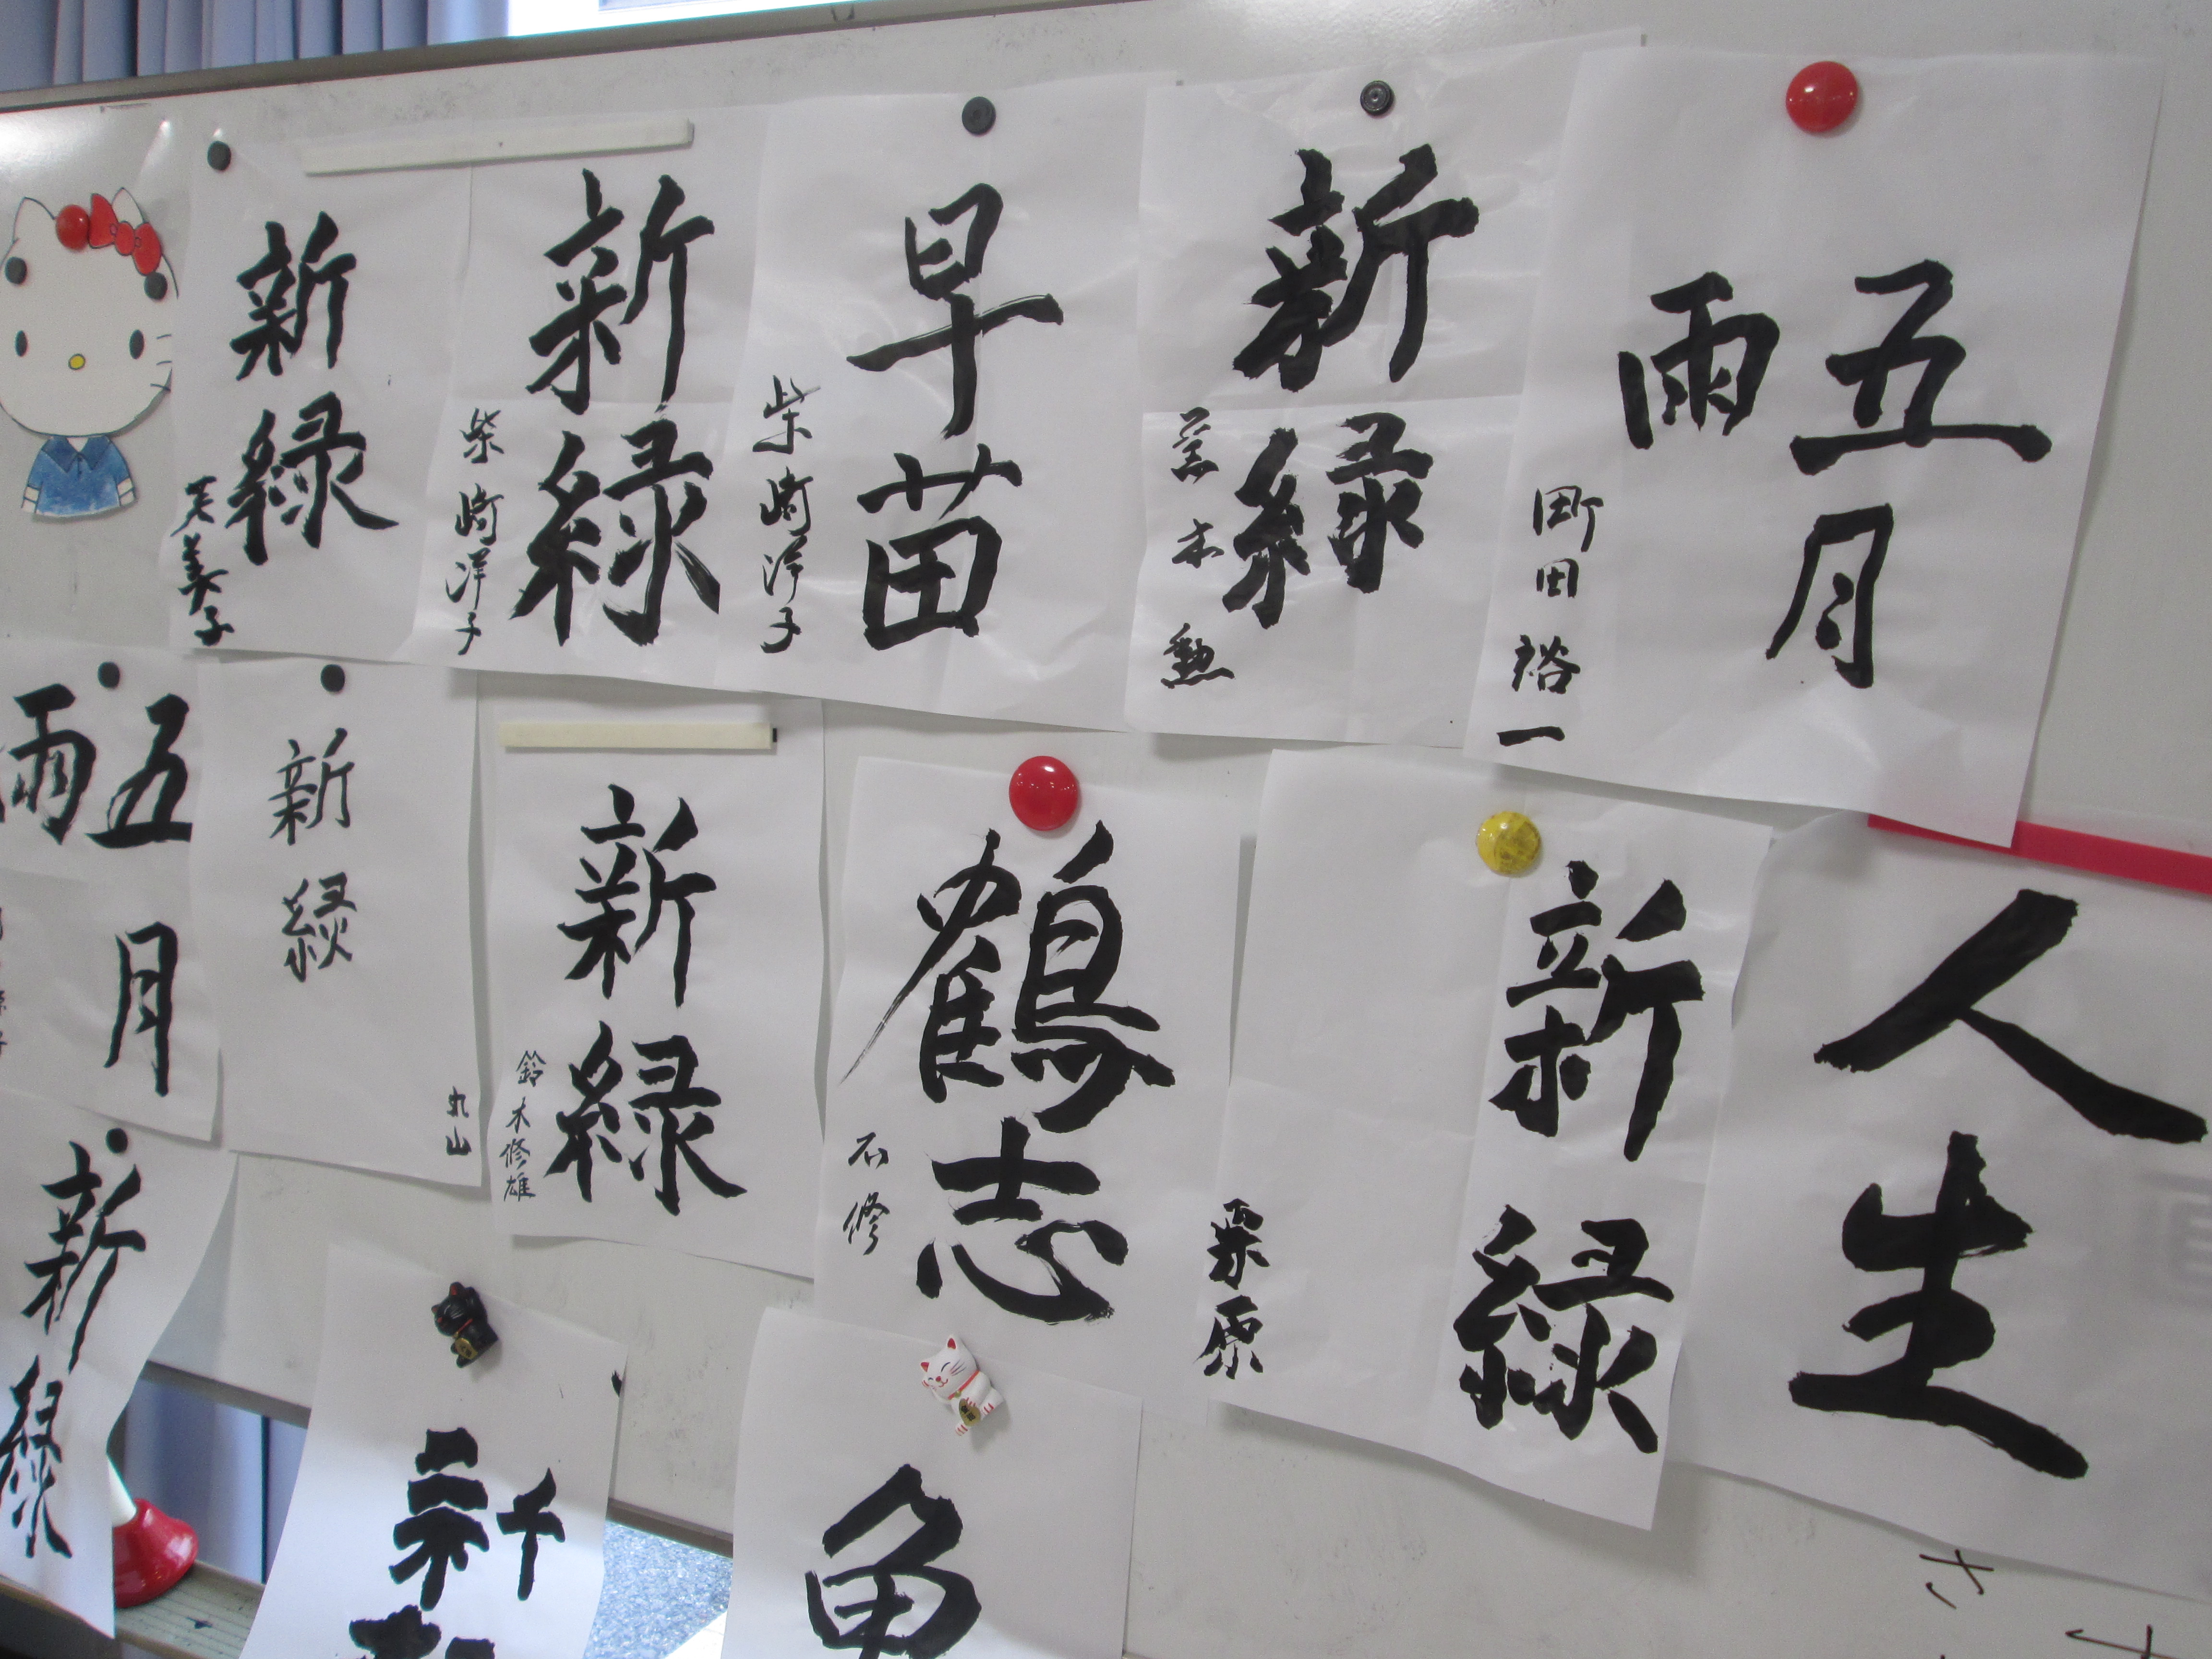 新緑
美子
新緑
柴崎洋子
早苗
柴崎洋子
新緑
荒木勲
五月
雨
町田裕一
五月
雨
新緑
丸山
新緑
鈴木修雄
鶴志
石修
新緑
栗原
人生
新緑
新
魚